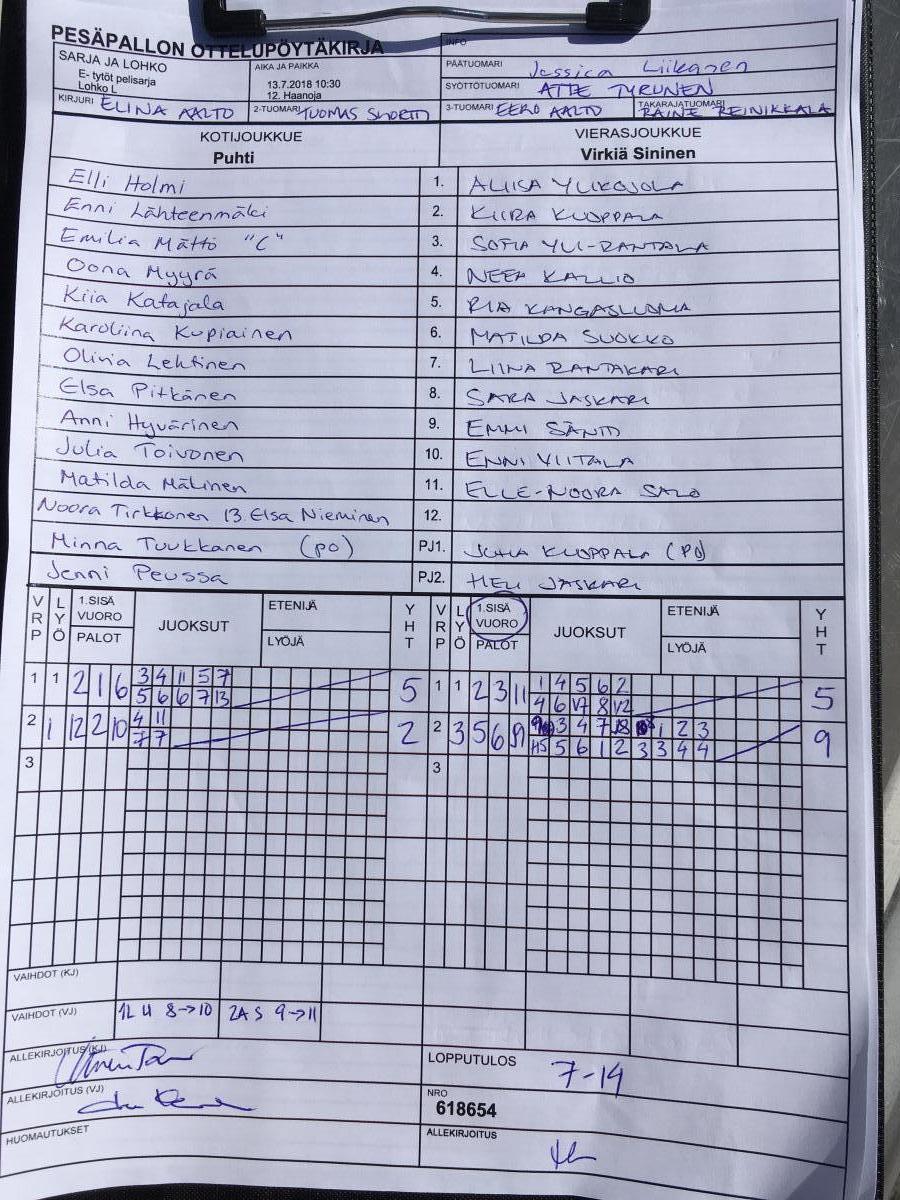 PESÄPALLON OTTELUPÖYTÄKIRJA
INFO
SARJA JA LOHKO
E- tytöt pelisarja
Lohko L
AIKA JA PAIKKA
13.7.2018 10:30
12. Haanoja
PÄÄTUOMARI Jessica Liikanen
SYÖTTÖTUOMARI ATTE TYRUNEN
KIRJURI ELINA AALTO 2-TUOMARI TUOMAS 3-TUOMARI EERO AALTO TAKARAJATUOMARI RAINE REINIKKALA
KOTIJOUKKUE VIERASJOUKKUE
Puhti Virkiä Sininen
Elli Holmi 1. ALIISA YLIKOJOLA
Enni Lähteenmäki 2. KIIRA KUOPPALA
Emilia Mättö "C" 3. SOFIA YLI-RANTALA
Oona Myyrä 4. NEEA KALLIO
Kiia Katajala 5. RIA KANGASLUOMA
Karoliina Kupiainen 6. MATILDA SUOKKO
Olivia Lehtinen 7. LIINA RANTAKARI
Elsa Pitkänen 8. SARA JASKARI
Anni Hyvärinen 9. EMMI SÄNTI
Julia Toivonen 10. ENNI VIITALA
Matilda Malinen 11. ELLE-NOORA SALO
Noora Tirkkonen 13. Elsa Nieminen 12.
Minna Tuukkanen (po) PJ1. JUHA KUOPPALA (PJ)
Jenni Peussa PJ2. HELI JASKARI
VRP LYÖ 1.SISÄ VUORO PALOT JUOKSUT ETENIJÄ LYÖJÄ YHT VRP LYÖ 1.SISÄ VUORO PALOT JUOKSUT ETENIJÄ LYÖJÄ YHT
1 1 2 1 6 3 4 11 5 7 5 1 1 2 3 11 1 4 5 6 2 5
5 6 6 7 13 4 6 V7 8 V2
2 1 12 2 10 4 11 2 2 3 5 6 9 3 4 7 1 2 3 9
7 7 5 6 1 2 3 3 4 4
3 3
VAIHDOT (KJ)
VAIHDOT (VJ) 1L U 8→10 2A S 9→11
ALLEKIRJOITUS (KJ) LOPPUTULOS 7-14
ALLEKIRJOITUS (VJ) NRO
618654
HUOMAUTUKSET ALLEKIRJOITUS